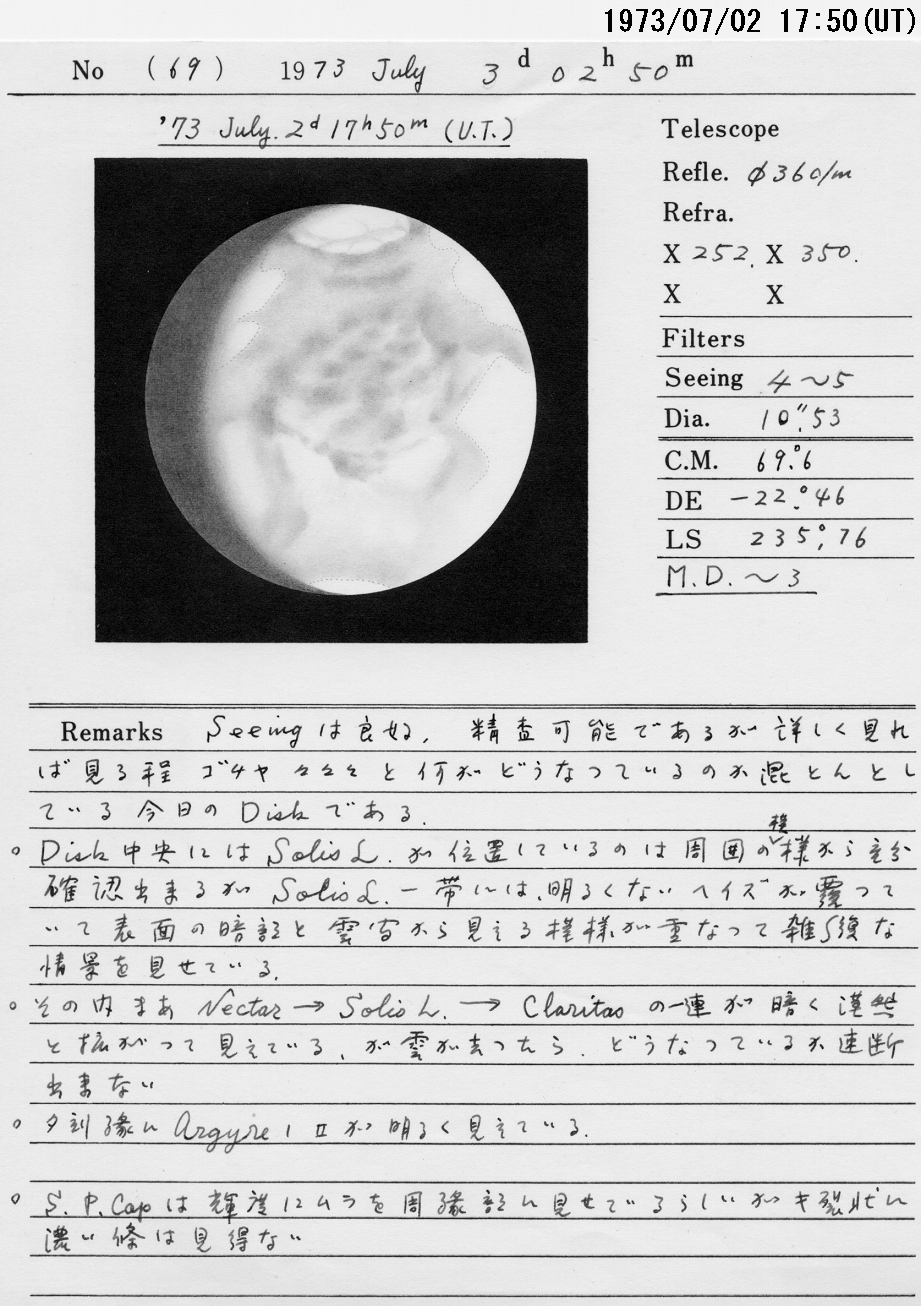 1973/07/02 17:50(UT)
No (69) 1973 July 3d 02h 50m
'73 July. 2d 17h50m (U.T.)
Telescope
Refle. φ360/m
Refra.
X 252. X 350.
X X
Filters
Seeing 4～5
Dia. 10".53
C.M. 69°.6
DE -22°.46
LS 235°.76
M.D. ～3
Remarks Seeingは良好. 精査可能であるが詳しく見れ
ば見る程 ゴチャ々々々と何がどうなっているのか混とんとし
ている今日のDiskである.
○ Disk中央にはSolis L.が位置しているのは周囲の模様から充分
確認出来るがSolis L.一帯には、明るくないヘイズが覆って
いて表面の暗部と雲間から見える模様が重なって雑然な
情景を見せている.
○ その内まあ Nectar → Solis L. → Claritasの一連が暗く漠然
と拡がって見えている、が雲が去ったら、どうなっているか速断
出来ない
○ 夕刻縁に Argyre I IIが明るく見えている.
○ S.P.Capは輝度にムラを周縁部に見せているらしいがキ裂状に
濃い條は見得ない